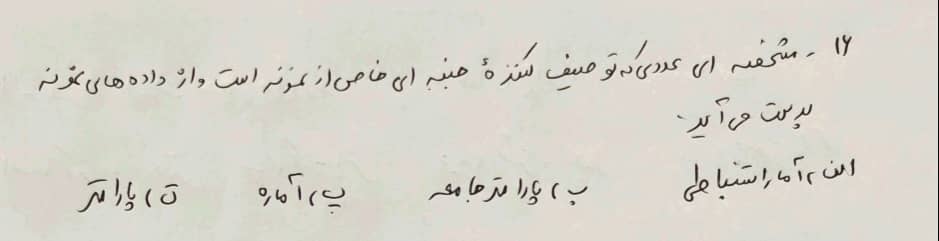 ۱۶ - مشخصه ای عددی که توصیف کننده ی جنبه ای خاص از نمونه است و از داده های نمونه
بدست می آید.
الف، آمار استنباطی ب، پارامتر جامعه پ، آماره ت، پارامتر